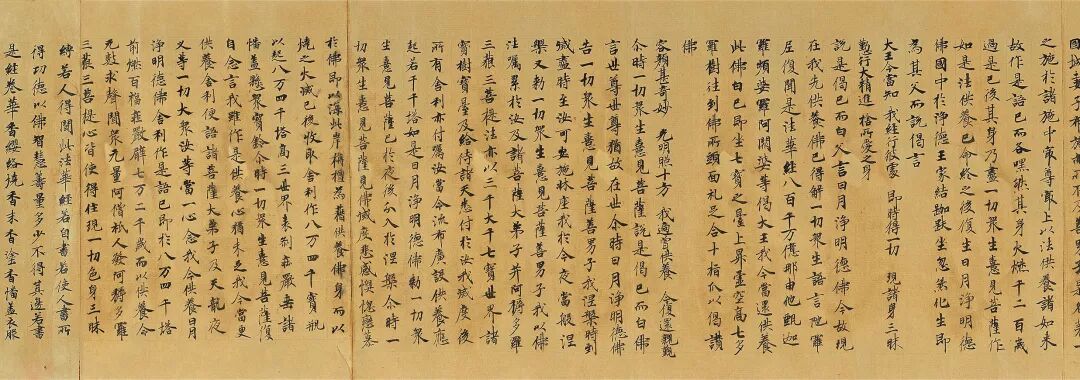 國城妻子布施所不及善男子是名第一
之施於諸施中最尊最上以法供養諸如來
故作是語已而各嘿然其身火燃千二百歲
過是已後其身乃盡一切眾生憙見菩薩作
如是法供養已命終之後復生日月淨明德
佛國中於淨德王家結跏趺坐忽然化生即
為其父而說偈言
大王今當知 我經行彼處 即時得一切 現諸身三昧
勤行大精進 捨所愛之身
說是偈已而白父言日月淨明德佛今故現
在我先供養佛已得解一切眾生語言陀羅
尼復聞是法華經八百千万億那由他甄迦
羅頻婆羅阿閦婆等偈大王我今當還供養
此佛白已即坐七寶之臺上昇虛空高七多
羅樹往到佛所頭面礼足合十指爪以偈讚
佛
容顏甚奇妙 光明照十方 我適曾供養 今復還親覲
尒時一切眾生憙見菩薩說是偈已而白佛
言世尊世尊猶故在世尒時日月淨明德佛
告一切眾生憙見菩薩善男子我涅槃時到
滅盡時至汝可安施床座我於今夜當般涅
槃又勑一切眾生憙見菩薩善男子我以佛
法囑累於汝及諸菩薩大弟子并阿耨多羅
三藐三菩提法亦以三千大千七寶世界諸
寶樹寶臺及給侍諸天悉付於汝我滅度後
所有舍利亦付囑汝當令流布廣設供養應
起若干千塔如是日月淨明德佛勑一切眾
生憙見菩薩已於夜後分入於涅槃尒時一
切眾生憙見菩薩見佛滅度悲感懊惱戀慕
於佛即以海此岸栴檀為𧂐供養佛身而以
燒之火滅已後收取舍利作八万四千寶瓶
以起八万四千塔高三世界表剎莊嚴垂諸
幡蓋懸眾寶鈴尒時一切眾生憙見菩薩復
自念言我雖作是供養心猶未足我今當更
供養舍利便語諸菩薩大弟子及天龍夜
叉等一切大眾汝等當一心念我今供養日月
淨明德佛舍利作是語已即於八万四千塔
前燃百福莊嚴臂七万二千歲而以供養令
无數求聲聞眾无量阿僧祇人發阿耨多羅
三藐三菩提心皆使得住現一切色身三昧
縛若人得聞此法華經若自書若使人書所
得功德以佛智慧籌量多少不得其邊若書
是經卷華香瓔珞燒香末香塗香幡蓋衣服